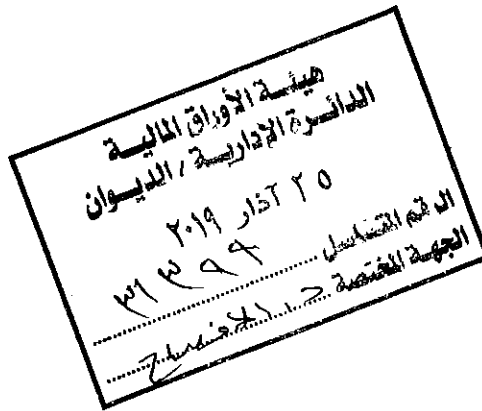 هيئة الأوراق المالية
الدائرة الإدارية / الديوان
٢٥ آذار ٢٠١٩
الرقم التسلسلي
الجهة المختصة الافصاح